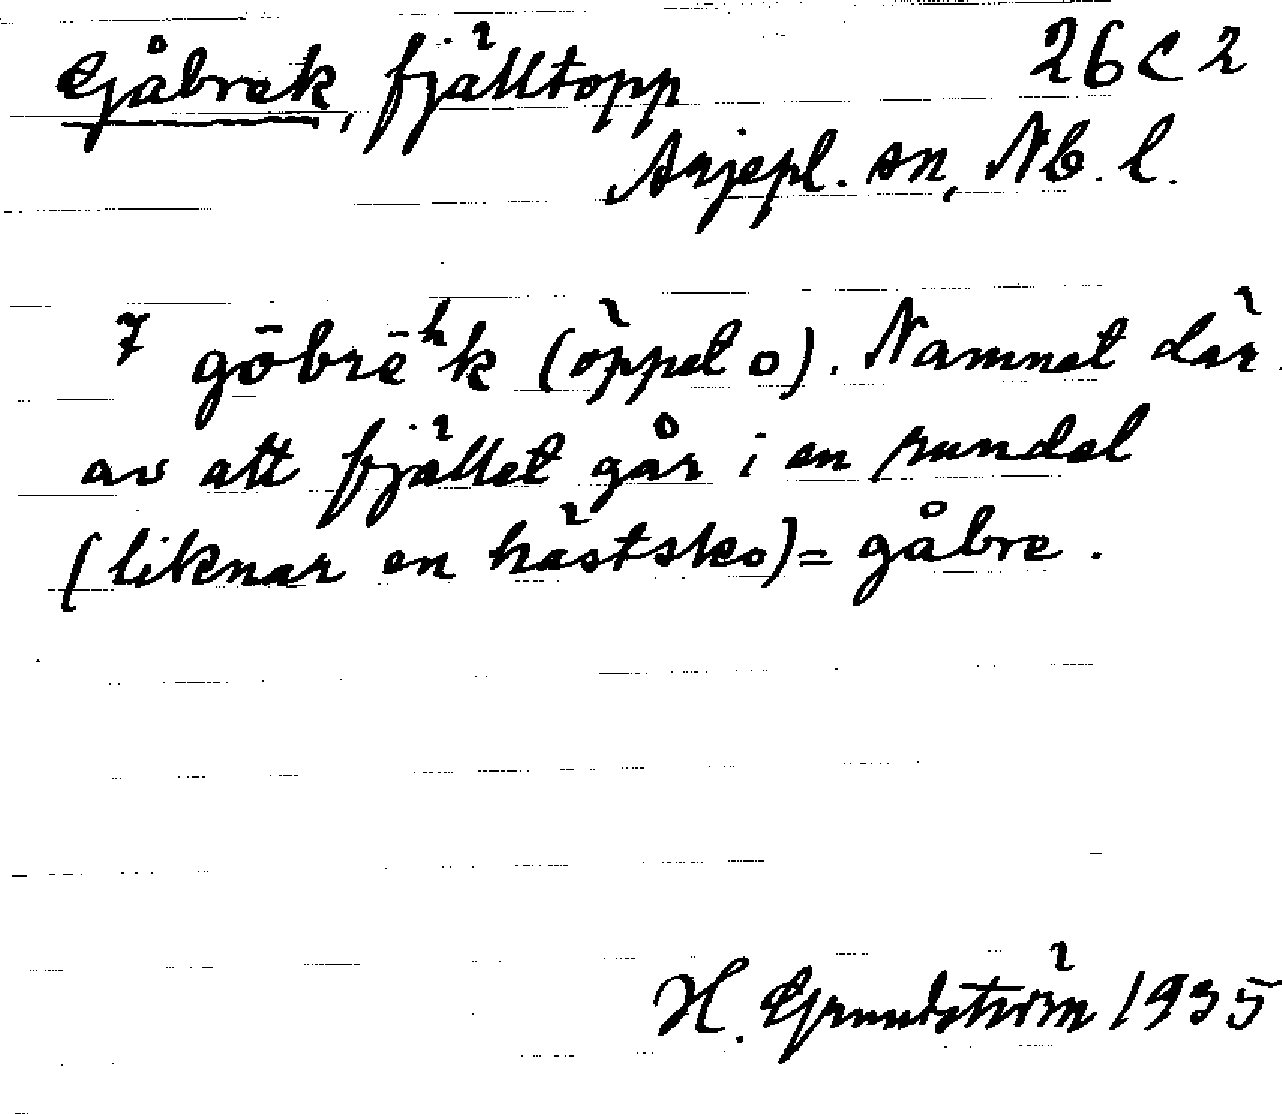 Gåbrek, fjälltopp 26 C 2
Arjepl. sn, Nb. l.
7 gōbrēʰk (öppet o). Namnet där-
av att fjället går i en rundel
(liknar en hästsko) = gåbre.
H. Grundström 1935